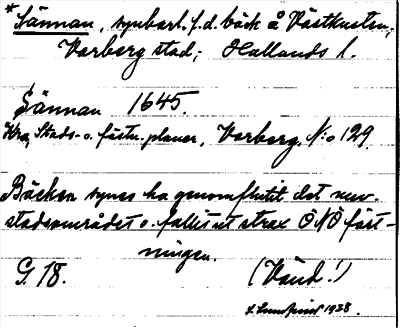 *Sännan, synbarl. f.d. bäck å Västkusten,
Varberg stad; Hallands l.
Sännan 1645.
Kra, Stads- o. fästn. planer, Varberg, N:o 129.
Bäcken synes ha genomflutit det nuv.
stadsområdet o. fallit ut strax ÖNÖ fäst-
ningen.
G. 18. (Vänd!)
1938